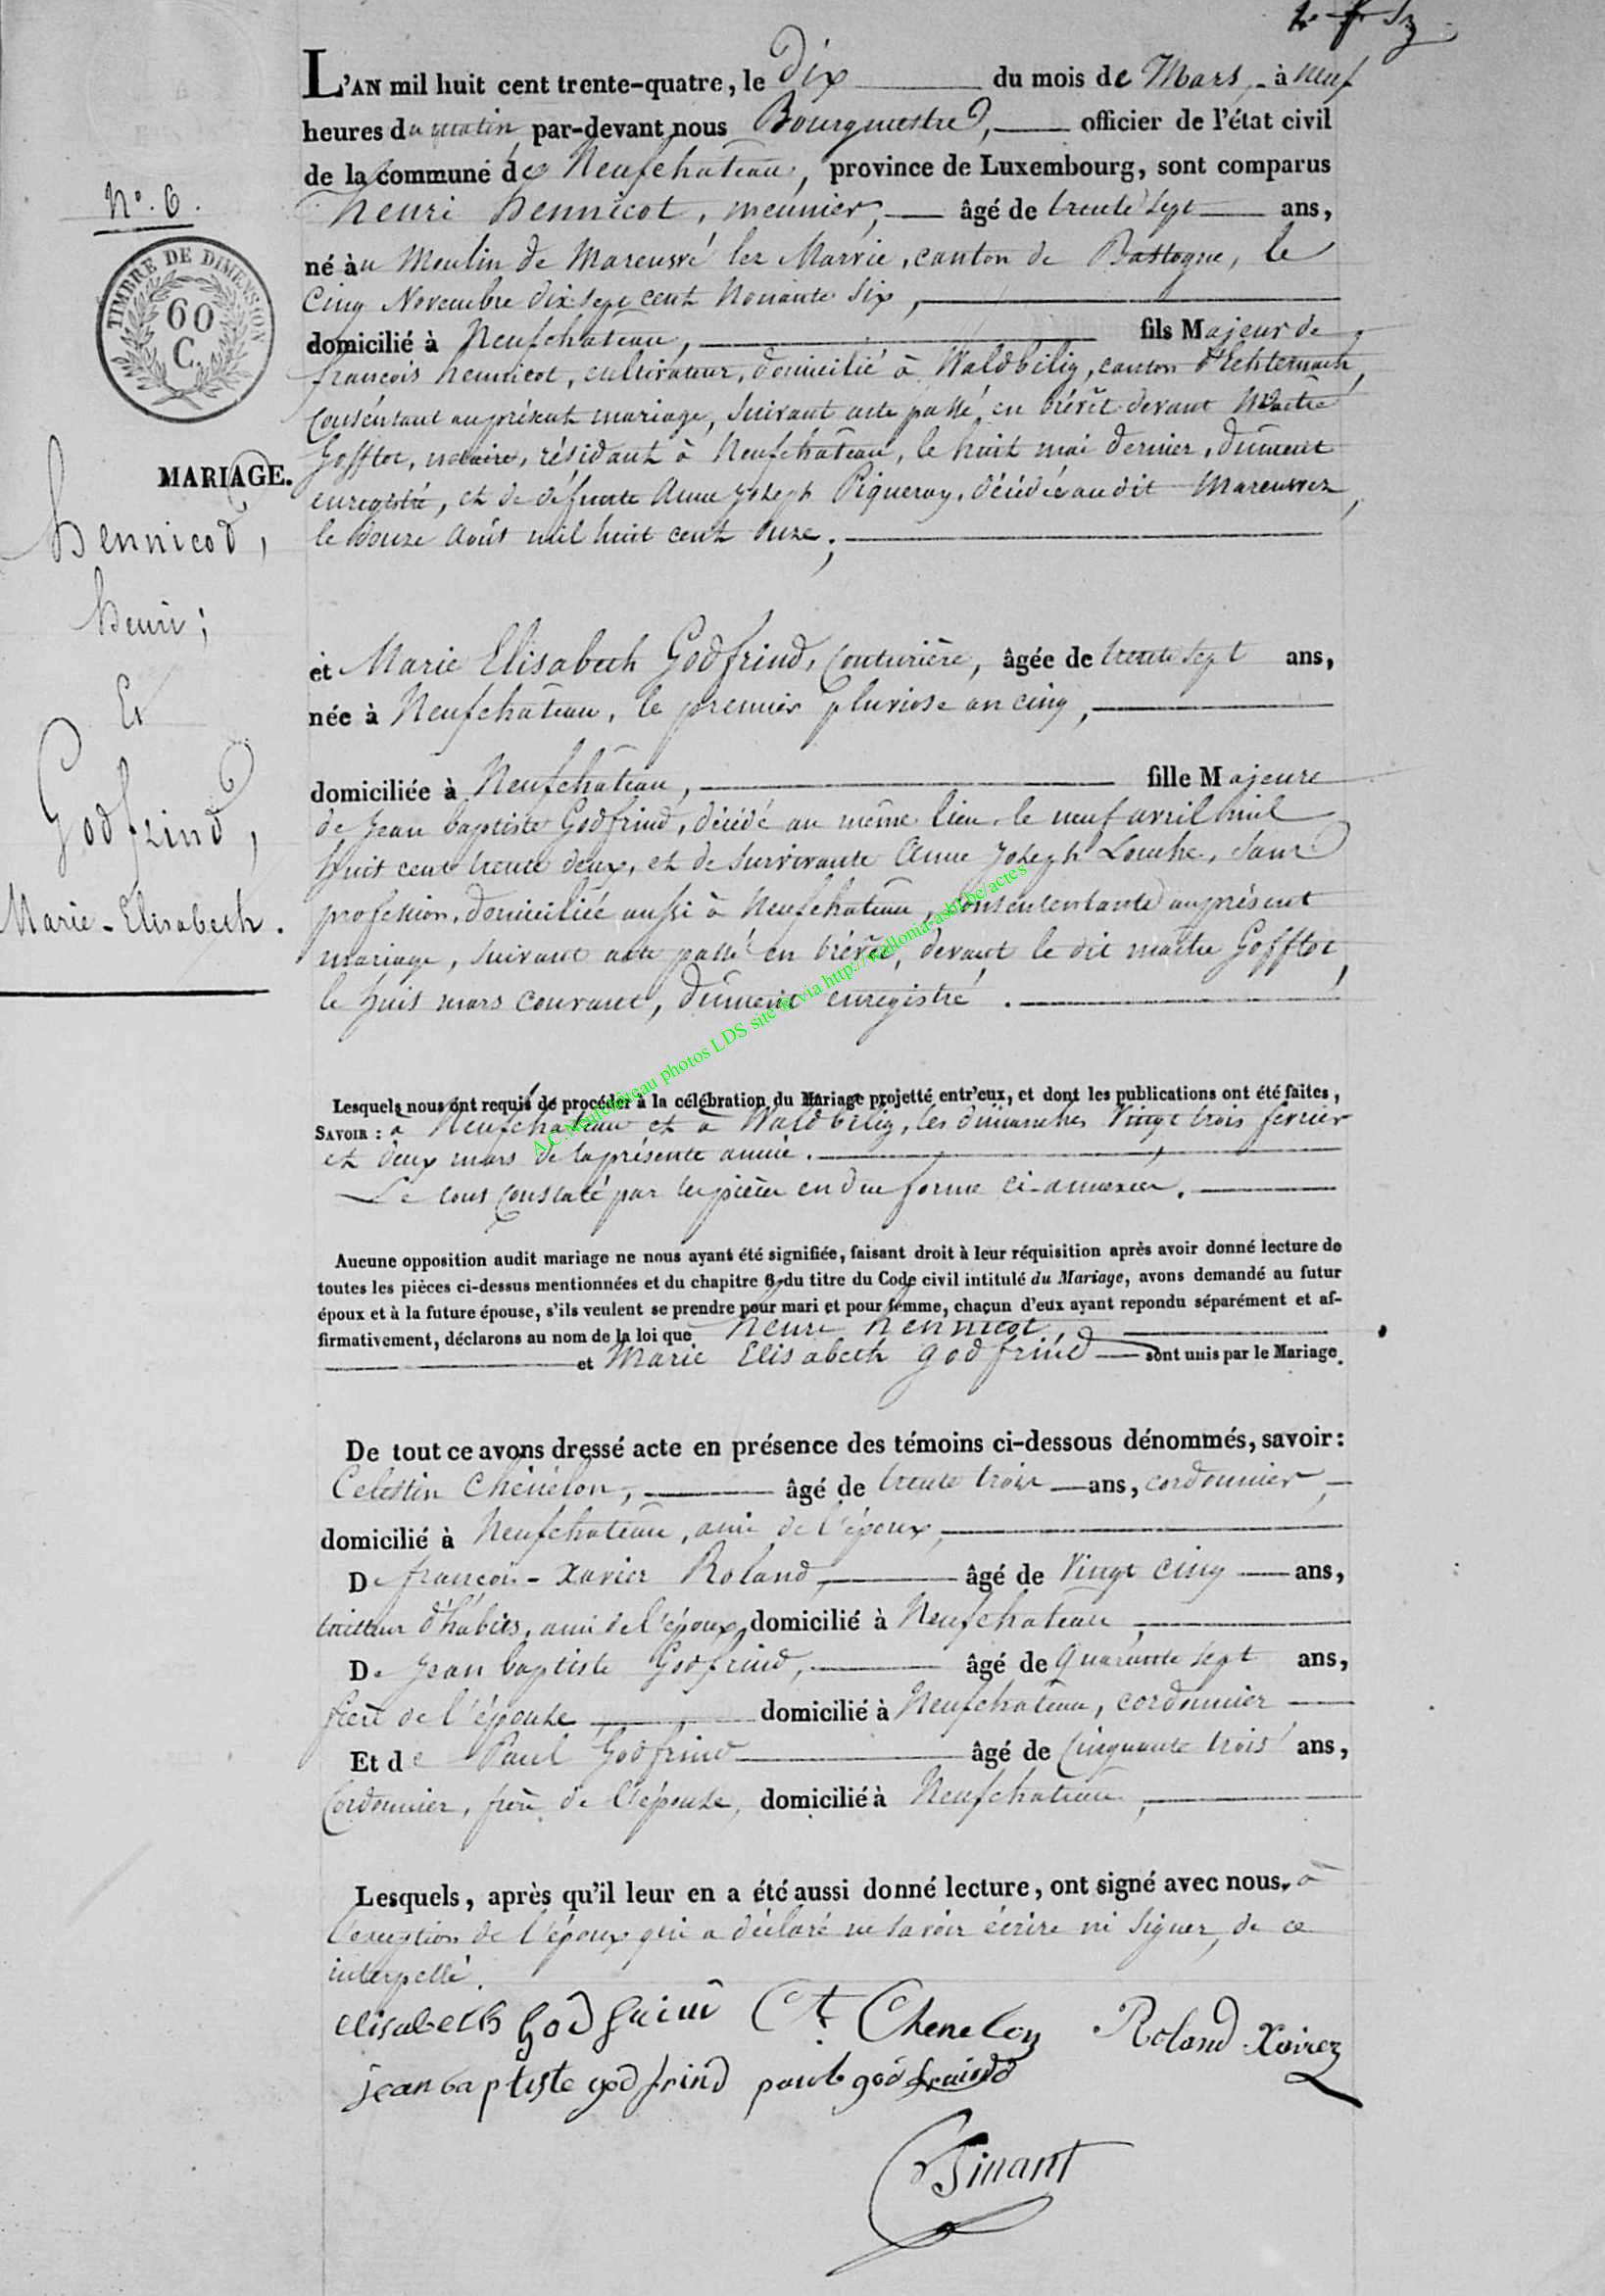 L'AN mil huit cent trente-quatre, le dix du mois de Mars, à neuf
heures du matin, par-devant nous Bourgmestre, officier de l'état civil
de la commune de Neufchateau, province de Luxembourg, sont comparus
henri hennicot, meunier, âgé de trente sept ans,
né au Moulin de Marenwé lez Marvie, canton de Bastogne, le
cinq Novembre dix sept cent Nonante six,
domicilié à Neufchateau, fils Majeur de
françois hennicot, cultivateur, domicilié à Waldbilig, canton d'Echternach,
consentant au présent mariage, suivant acte passé en brévêt devant Maître
Gofftot, notaire, résidant à Neufchâteau, le huit mai dernier, dûment
enregistré, et de défunte Anne Joseph Piqueray, décédée audit Marenwez
le douze Août mil huit cent onze;
N°. 6.
TIMBRE DE DIMENSION
60
C.
MARIAGE.
hennicot,
henri;
Et
Godfrind,
Marie-Elisabeth.
et Marie Elisabeth Godfrind, couturière, âgée de trente sept ans,
née à Neufchâteau, le premier pluviose an cinq,
domiciliée à Neufchâteau, fille Majeure
de Jean baptiste Godfrind, décédé au même lieu le neuf avril mil
huit cent trente deux, et de survivante Anne Joseph Louche, sans
profession, domiciliée aussi à Neufchâteau, consentante au présent
mariage, suivant acte passé en brévêt, devant le dit maître Gofftot,
le huit mars courant, dûment enregistré.
A.C. Neufchâteau photos LDS site via http://wallonia-asbl.be/actes
Lesquels nous ont requis de procéder à la célébration du Mariage projetté entr'eux, et dont les publications ont été faites,
SAVOIR : à Neufchateau et à Waldbilig, les dimanches Vingt trois fevrier
et deux mars de la présente année.
Le tout constaté par les pièces en due forme ci-annexées.
Aucune opposition audit mariage ne nous ayant été signifiée, faisant droit à leur réquisition après avoir donné lecture de
toutes les pièces ci-dessus mentionnées et du chapitre 6 du titre du Code civil intitulé du Mariage, avons demandé au futur
époux et à la future épouse, s'ils veulent se prendre pour mari et pour femme, chaçun d'eux ayant repondu séparément et af-
firmativement, déclarons au nom de la loi que henri hennicot
et Marie Elisabeth godfrind sont unis par le Mariage.
De tout ce avons dressé acte en présence des témoins ci-dessous dénommés, savoir :
Celestin Chénélon, âgé de trente trois ans, cordonnier,
domicilié à Neufchateau, ami de l'époux,
De françois-Xavier Roland, âgé de Vingt cinq ans,
tailleur d'habits, ami de l'époux, domicilié à Neufchateau,
De Jean baptiste Godfrind, âgé de quarante sept ans,
frère de l'épouse, domicilié à Neufchateau, cordonnier
Et de Paul Godfrind âgé de cinquante trois ans,
cordonnier, frère de l'épouse, domicilié à Neufchateau,
Lesquels, après qu'il leur en a été aussi donné lecture, ont signé avec nous, à
l'exception de l'époux qui a déclaré ne savoir écrire ni signer, de ce
interpellé.
elisabeth godfrind Ct. Chenelon Roland Xavier
jean baptiste godfrind paul godfraind